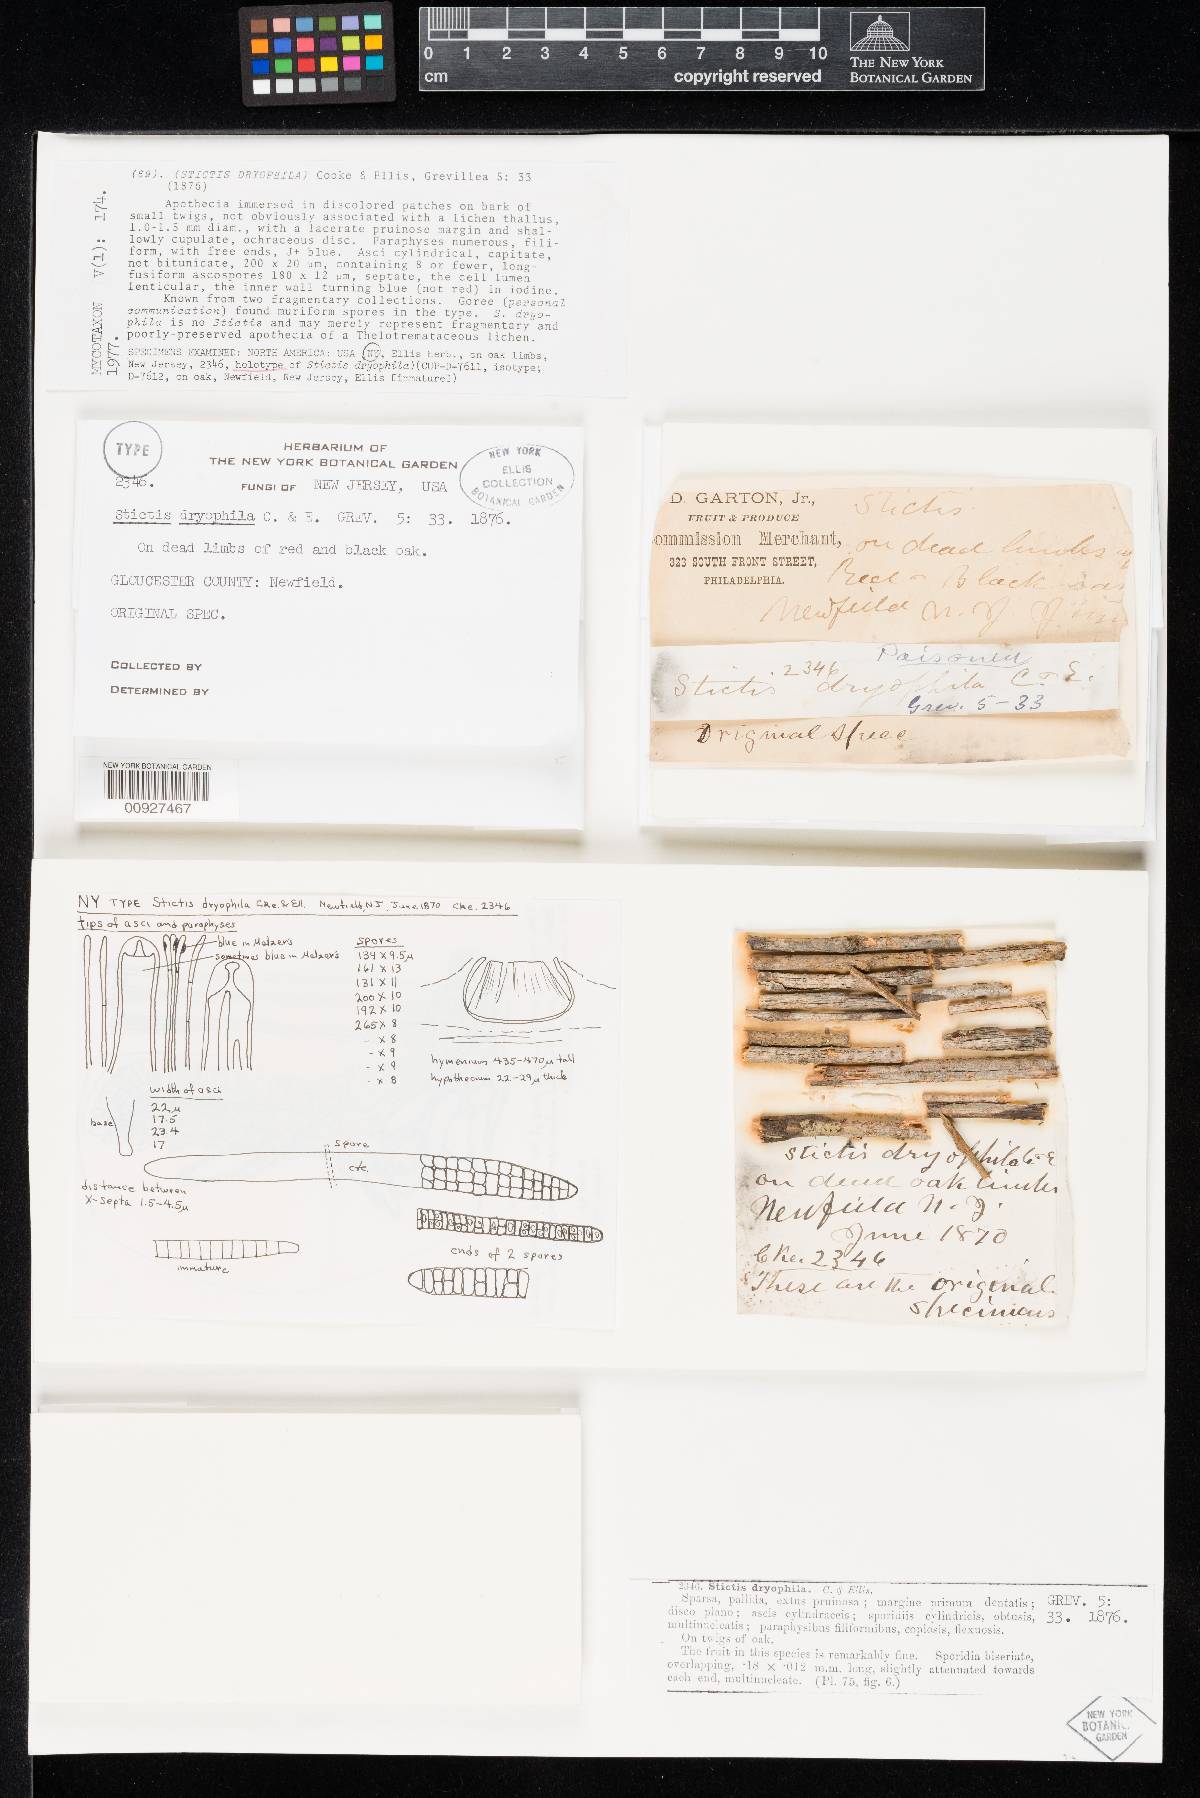 0 1 2 3 4 5 6 7 8 9 10
cm
copyright reserved
THE NEW YORK
BOTANICAL GARDEN
MYCOTAXON V(1): 174.
1977.
(69). (STICTIS DRYOPHILA) Cooke & Ellis, Grevillea 5: 33
(1876)
Apothecia immersed in discolored patches on bark of
small twigs, not obviously associated with a lichen thallus,
1.0-1.5 mm diam., with a lacerate pruinose margin and shal-
lowly cupulate, ochraceous disc. Paraphyses numerous, fili-
form, with free ends, J+ blue. Asci cylindrical, capitate,
not bitunicate, 200 x 20 µm, containing 8 or fewer, long-
fusiform ascospores 180 x 12 µm, septate, the cell lumen
lenticular, the inner wall turning blue (not red) in iodine.
Known from two fragmentary collections. Goree (personal
communication) found muriform spores in the type. S. dryo-
phila is no Stictis and may merely represent fragmentary and
poorly-preserved apothecia of a Thelotremataceous lichen.
SPECIMENS EXAMINED: NORTH AMERICA: USA (NY, Ellis herb., on oak limbs,
New Jersey, 2346, holotype of Stictis dryophila)(CUP-D-7611, isotype;
D-7612, on oak, Newfield, New Jersey, Ellis [immature])
TYPE
HERBARIUM OF
THE NEW YORK BOTANICAL GARDEN
NEW YORK
ELLIS
COLLECTION
BOTANICAL GARDEN
2346.
FUNGI OF NEW JERSEY, USA
Stictis dryophila C. & E. GREV. 5: 33. 1876.
On dead limbs of red and black oak.
GLOUCESTER COUNTY: Newfield.
ORIGINAL SPEC.
COLLECTED BY
DETERMINED BY
NEW YORK BOTANICAL GARDEN
00927467
D. GARTON, Jr.,
FRUIT & PRODUCE
ommission Merchant,
323 SOUTH FRONT STREET,
PHILADELPHIA.
Stictis
on dead limbs of
Red & Black oak
Newfield N. J.
Poisoned
2346
Stictis dryophila C. & E.
Grev. 5-33
Original Spec
NY TYPE Stictis dryophila Cke. & Ell. Newfield, NJ. June 1870 Cke. 2346
tips of asci and paraphyses
blue in Melzer's
sometimes blue in Melzer's
spores
134 x 9.5µ
161 x 13
131 x 11
200 x 10
192 x 10
265 x 8
- x 8
- x 9
- x 9
- x 8
hymenium 435-470µ tall
hypothecium 22-29µ thick
width of asci
22µ
17.5
23.4
17
base
spore
etc.
distance between
X-septa 1.5-4.5µ
immature
ends of 2 spores
Stictis dryophila C & E
on dead oak limbs
Newfield N. J.
June 1870
Cke. 2346
These are the original
specimens
2346. Stictis dryophila. C. & Ellis.
Sparsa, pallida, extus pruinosa; margine primum dentatis;
disco plano; ascis cylindraceis; sporidiis cylindricis, obtusis,
multinucleatis; paraphysibus filiformibus, copiosis, flexuosis.
On twigs of oak.
The fruit in this species is remarkably fine. Sporidia biseriate,
overlapping, ·18 × ·012 m.m. long, slightly attenuated towards
each end, multinucleate. (Pl. 75, fig. 6.)
GREV. 5:
33. 1876.
NEW YORK
BOTANICAL
GARDEN